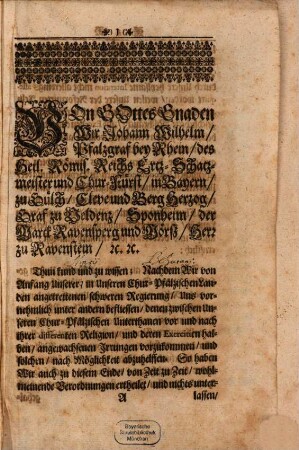 1
VOn GOttes Gnaden
Wir Johann Wilhelm /
Pfaltzgraf bey Rhein / des
Heil. Römis. Reichs Ertz-Schatz-
meister und Chur-Fürst / in Bayern /
zu Gülch / Cleve und Berg Hertzog /
Graf zu Veldentz / Sponheim / der
Marck Ravensperg und Mörß / Herr
zu Ravenstein / ꝛc. ꝛc.
Thun kund und zu wissen: Nachdem Wir von
Anfang Unserer / in Unseren Chur-Pfältzischen Lan-
den angetrettenen schweren Regierung / Uns vor-
nehmlich unter andern beflissen / denen zwischen Un-
seren Chur-Pfältzischen Unterthanen vor und nach
ihrer differenten Religion / und deren Exercitien hal-
ben / angewachsenen Irrungen vorzukommen / und
solchen / nach Möglichkeit abzuhelffen. So haben
Wir auch zu diesem Ende / von Zeit zu Zeit / wohl-
meinende Verordnungen ertheilet / und nichts unter-
A lassen /
Bayerische
Staatsbibliothek
München